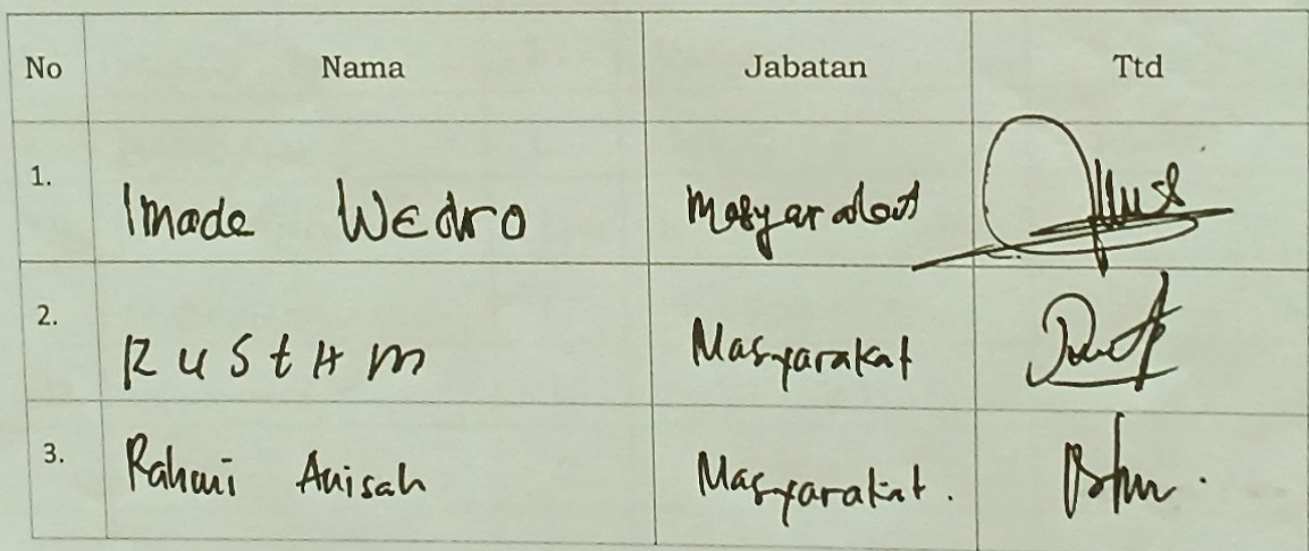 No Nama Jabatan Ttd
1. Imade Wedro Masyarakat
2. Rusthm Masyarakat
3. Rahmi Anisah Masyarakat.